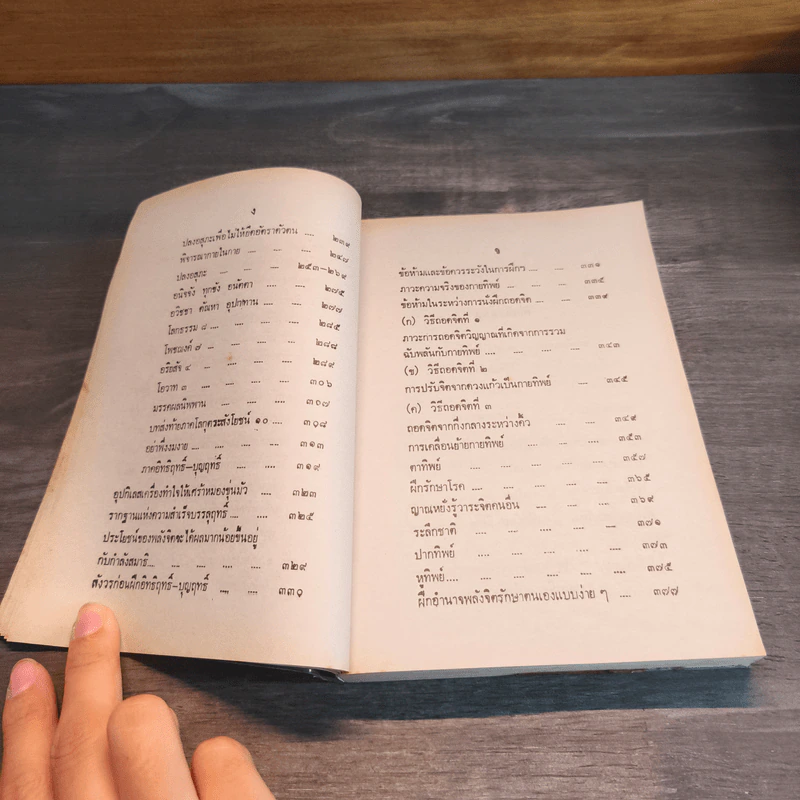 ง
ปลงอสุภะเพื่อไม่ให้ยึดอัตราตัวตน .... ๒๓๙
พิจารณากายในกาย .... .... .... ๒๔๗
ปลงอสุภะ .... .... .... ๒๕๓-๒๖๙
อนิจจัง ทุกขัง อนัตตา .... ๒๗๕
อวิชชา ตัณหา อุปาทาน .... ๒๗๗
โลกธรรม ๘ .... .... .... ๒๘๕
โพชฌงค์ ๗ .... .... .... ๒๘๘
อริอสัจ ๔ .... .... .... ๒๘๙
โอวาท ๓ .... .... .... ๓๐๖
มรรคผลนิพพาน .... .... ๓๐๗
บทส่งท้ายภาคโลกุตระสังโยชน์ ๑๐ .... ๓๐๘
อย่าพึ่งงมงาย .... .... .... ๓๑๓
ภาคอิทธิฤทธิ์-บุญฤทธิ์ .... .... ๓๑๙
อุปกิเลสเครื่องทำใจให้เศร้าหมองขุ่นมัว .... ๓๒๓
รากฐานแห่งความสำเร็จบรรลุฤทธิ์ .... .... ๓๒๕
ประโยชน์ของพลังจิตจะได้ผลมากน้อยขึ้นอยู่
กับกำลังสมาธิ... .... .... .... ๓๒๙
สังวรก่อนฝึกอิทธิฤทธิ์-บุญฤทธิ์ .... .... ๓๓๐
จ
ข้อห้ามและข้อควรระวังในการฝึกฯ .... .... ๓๓๑
ภาวะความจริงของกายทิพย์ .... .... ๓๓๕
ข้อห้ามในระหว่างการนั่งฝึกถอดจิต .... .... ๓๓๙
(ก) วิธีถอดจิตที่ ๑
ภาวะการถอดจิตวิญญาณที่เกิดจากการรวม
ฉับพลันกับกายทิพย์ .... .... .... .... ๓๔๓
(ข) วิธีถอดจิตที่ ๒
การปรับจิตจากดวงแก้วเป็นกายทิพย์ .... ๓๔๕
(ค) วิธีถอดจิตที่ ๓
ถอดจิตจากกึ่งกลางระหว่างคิ้ว .... ๓๔๙
การเคลื่อนย้ายกายทิพย์ .... .... .... ๓๕๓
ตาทิพย์ .... .... .... .... ๓๕๗
ฝึกรักษาโรค .... .... .... .... ๓๖๕
ญาณหยั่งรู้วาระจิตคนอื่น .... .... .... ๓๖๙
ระลึกชาติ .... .... .... .... ๓๗๑
ปากทิพย์ .... .... .... .... ๓๗๓
หูทิพย์.... .... .... .... .... ๓๗๕
ฝึกอำนาจพลังจิตรักษาตนเองแบบง่าย ๆ .... ๓๗๗